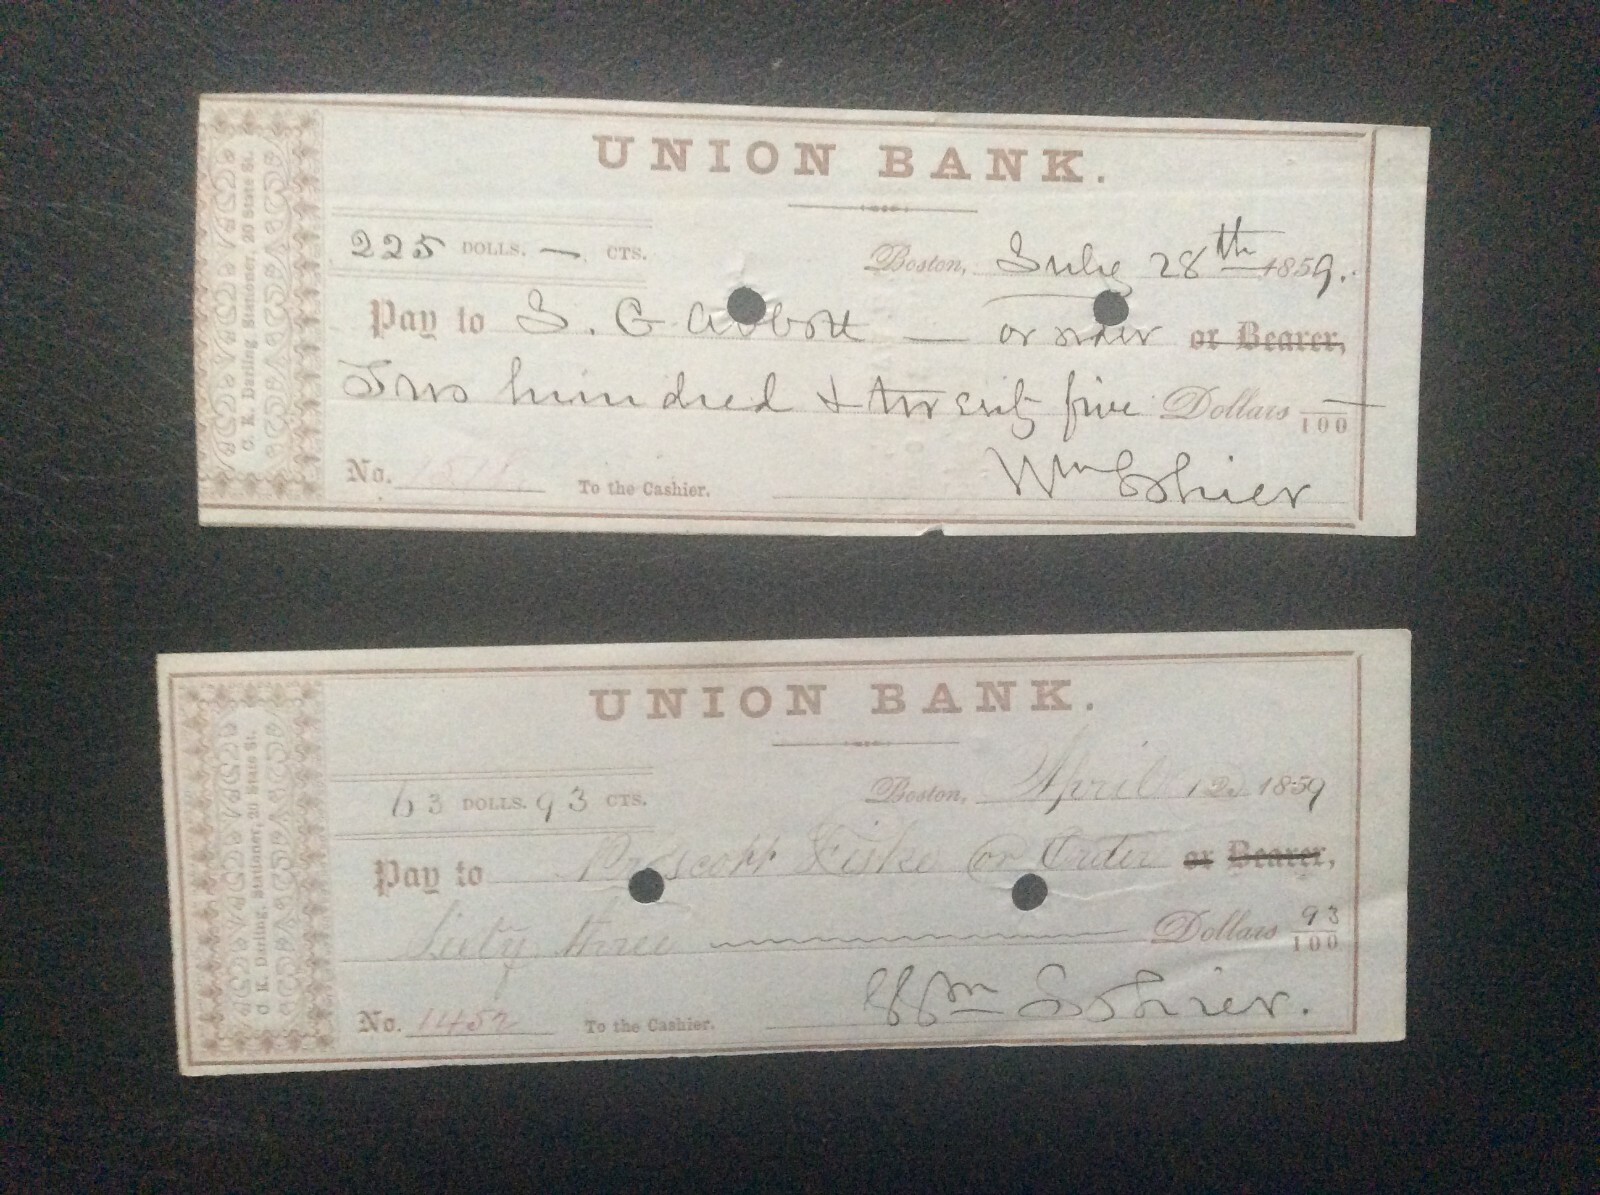 UNION BANK.
225 DOLLS. — CTS.
Boston, July 28th 1859.
Pay to S. G Abbott — or order or Bearer,
Two hundred & twenty five Dollars —/100
No. To the Cashier.
Wm Sohier
C. K. Darling, Stationer, 20 State St.
UNION BANK.
63 DOLLS. 93 CTS.
Boston, April 12 1859
Pay to Prescott Fiske or Order or Bearer,
Sixty three Dollars 93/100
No. 1452 To the Cashier.
Wm Sohier.
C. K. Darling, Stationer, 20 State St.